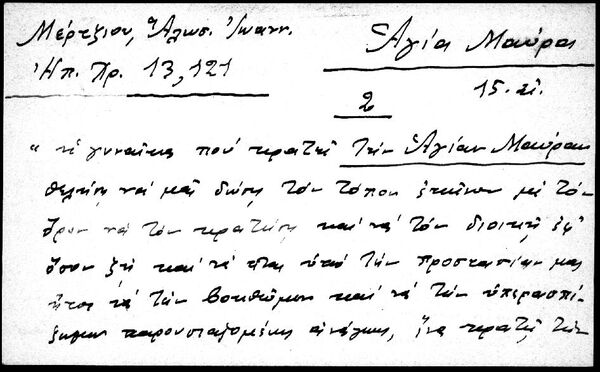 Μέρτζιου, Ἅλωσ. Ἰωανν.
Ἠπ. Χρ. 13,121
Ἁγία Μαύρα
15. αἰ.
2
"ἡ γυναῖκα ποὺ κρατεῖ τὴν Ἁγίαν Μαύραν
θελήση νὰ μᾶς δώσῃ τὸν τόπον ἐκεῖνον μὲ τὸν
ὅρον νὰ τὸν κρατήση καὶ νὰ τὸν διοικῇ ἐφ'
ὅσον ζῇ καὶ νὰ εἶναι ὑπὸ τὴν προστασίαν μας
ἤτοι νὰ τὴν βοηθῶμεν καὶ νὰ τὴν ὑπερασπί-
ζωμεν παρουσιαζομένης ἀνάγκης, ἵνα κρατῇ τὸν